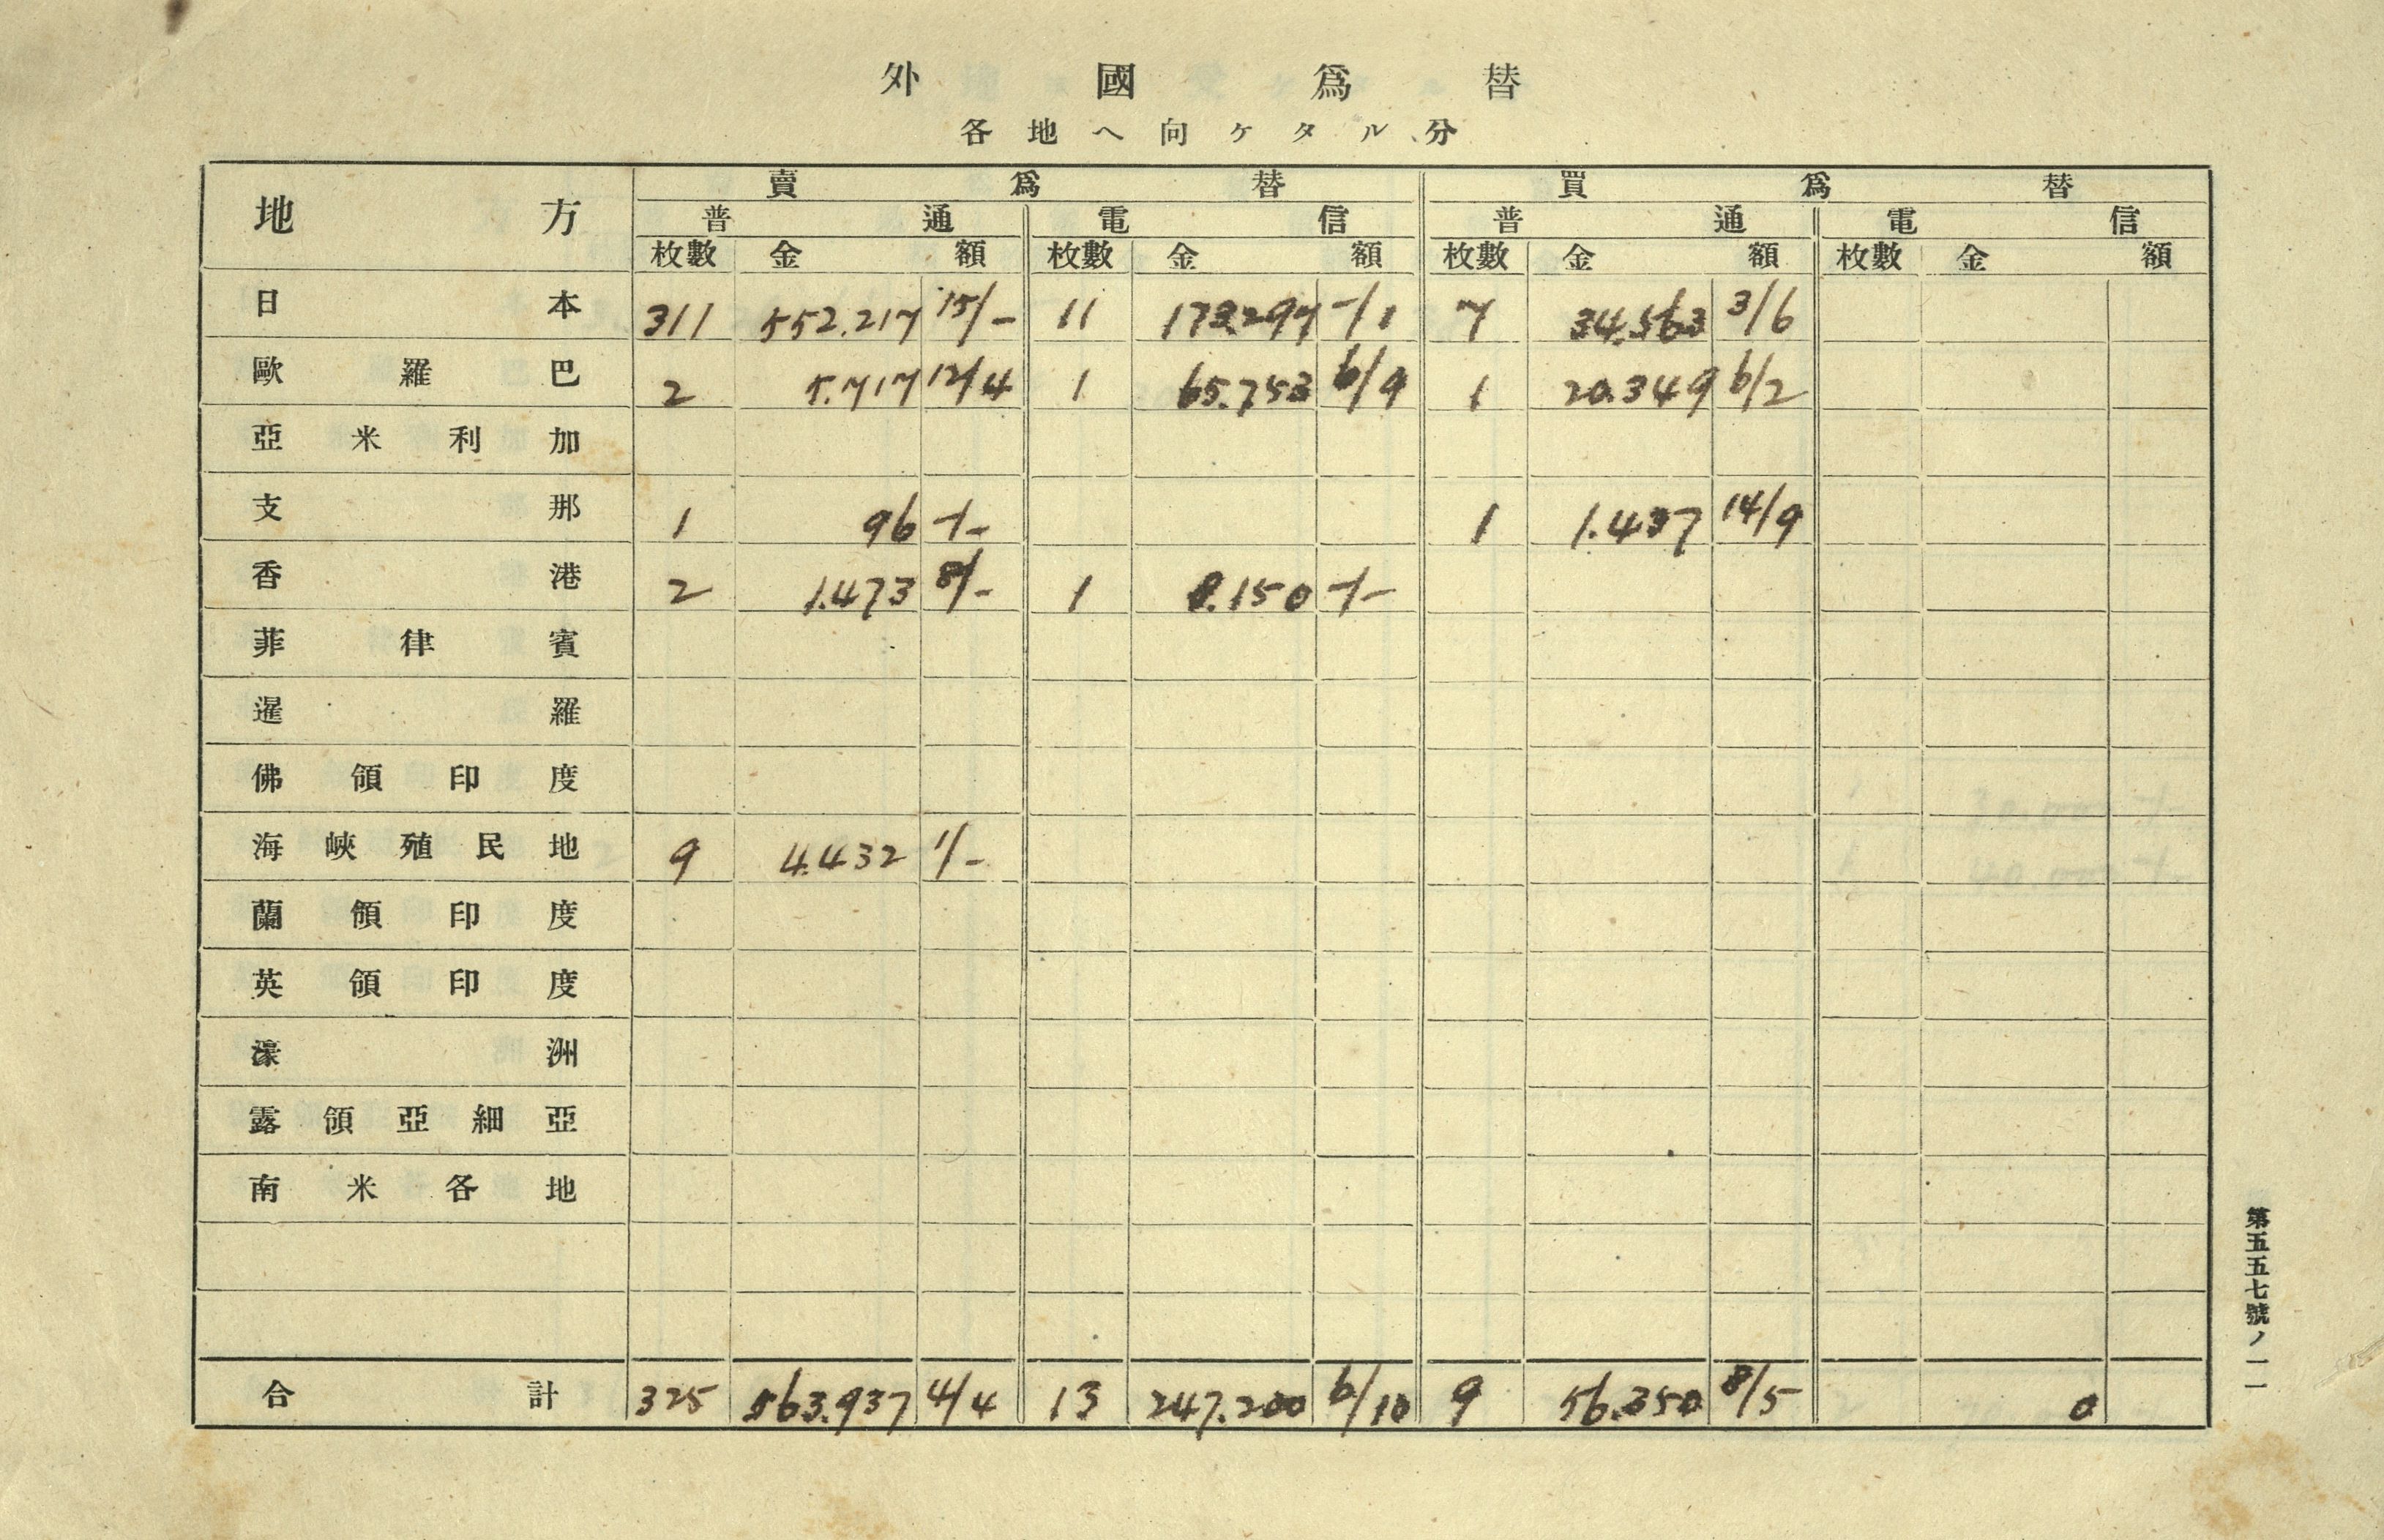 外國爲替
各地へ向ケタル分
地方 賣爲替 買爲替
普通 電信 普通 電信
枚數 金額 枚數 金額 枚數 金額 枚數 金額
日本 311 552.217 15/- 11 173.297 -/1 7 34.563 3/6
歐羅巴 2 5.717 12/4 1 65.753 6/9 1 20.349 6/2
亞米利加
支那 1 96 -/- 1 1.437 14/9
香港 2 1.473 8/- 1 8.150 -/-
菲律賓
暹羅
佛領印度
海峽殖民地 9 4.432 1/-
蘭領印度
英領印度
濠洲
露領亞細亞
南米各地
合計 325 563.937 4/4 13 247.200 6/10 9 56.350 8/5 0
第五五七號ノ一一